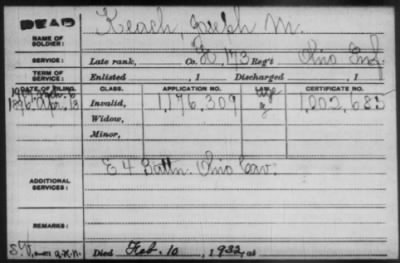 DEAD
NAME OF SOLDIER: Keach, Joseph M.
SERVICE: Late rank, Co. K, 173 Reg't Ohio Inf.
TERM OF SERVICE: Enlisted , 1 Discharged , 1
DATE OF FILING. CLASS. APPLICATION NO. LAW. CERTIFICATE NO.
1896 Apr. 13 Invalid, 1,176,309 1,002,683
Widow,
Minor,
ADDITIONAL SERVICES: E 4 Battn. Ohio Cav.
REMARKS:
Died Feb. 10, 1932, at